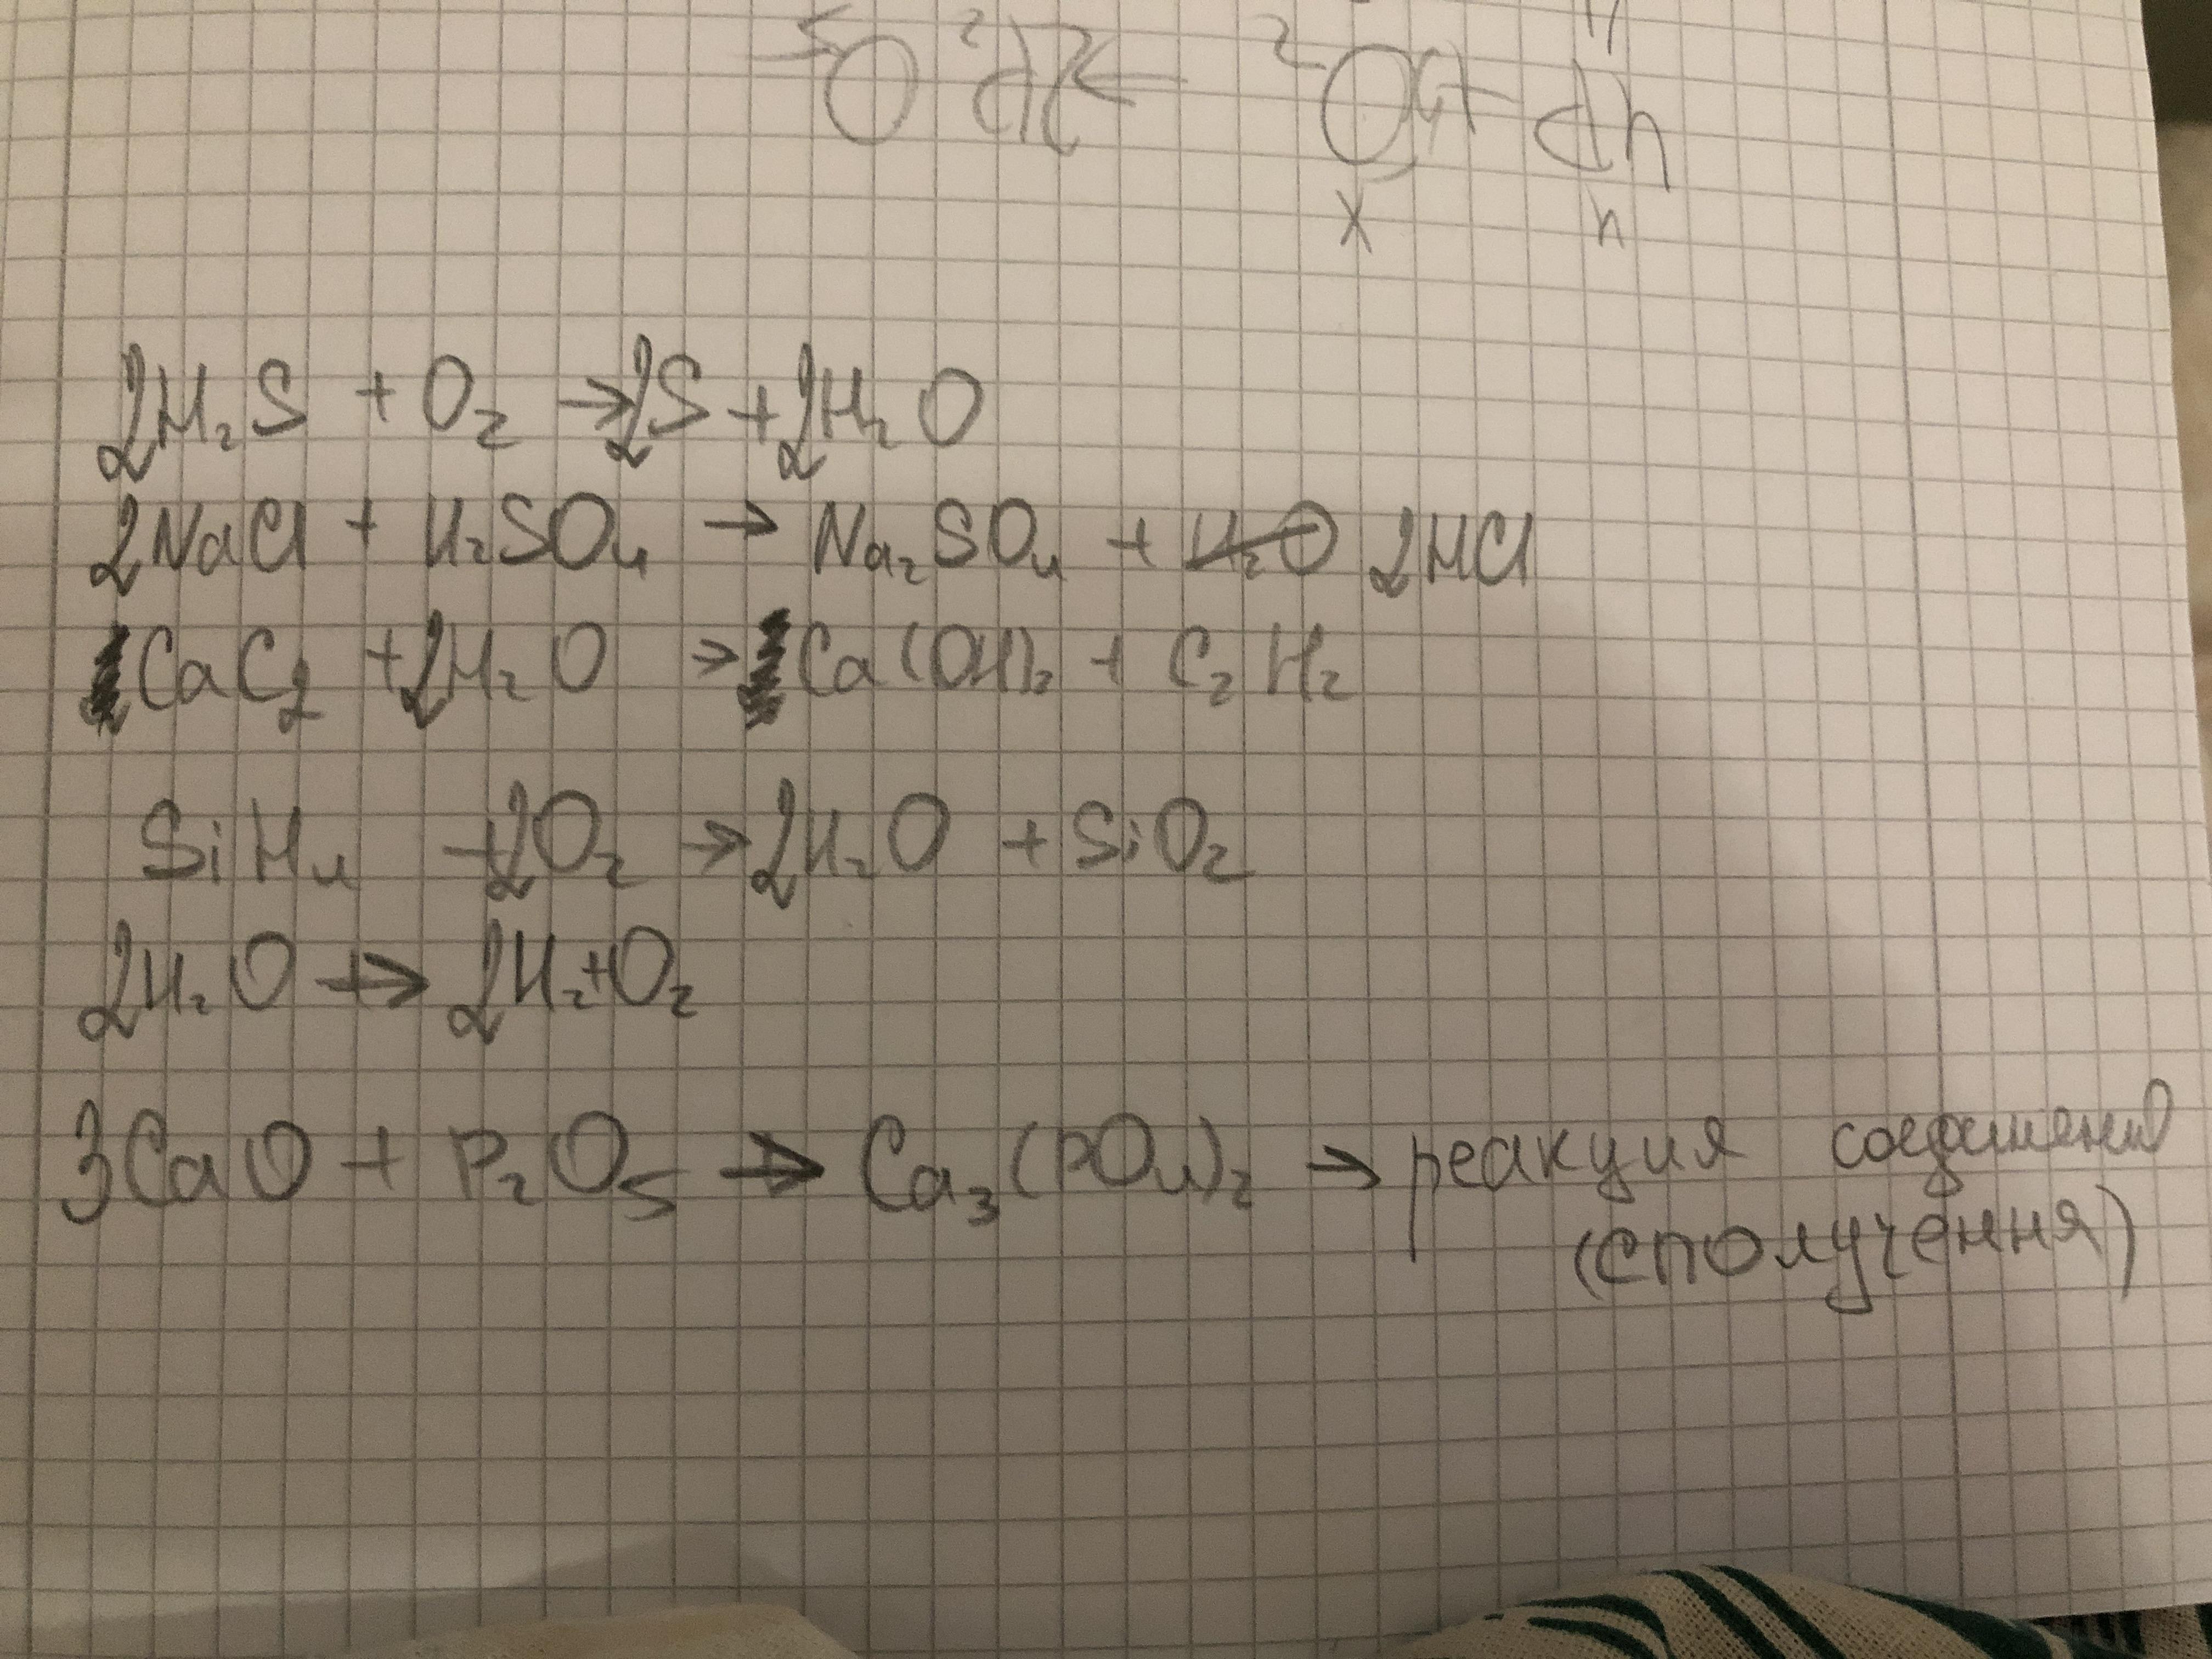 2H₂S + O₂ → 2S + 2H₂O
2NaCl + H₂SO₄ → Na₂SO₄ + H₂O 2HCl
CaC₂ + 2H₂O → Ca(OH)₂ + C₂H₂
SiH₄ + 2O₂ → 2H₂O + SiO₂
2H₂O → 2H₂+O₂
3CaO + P₂O₅ → Ca₃(PO₄)₂ → реакция соединения
(сполучення)